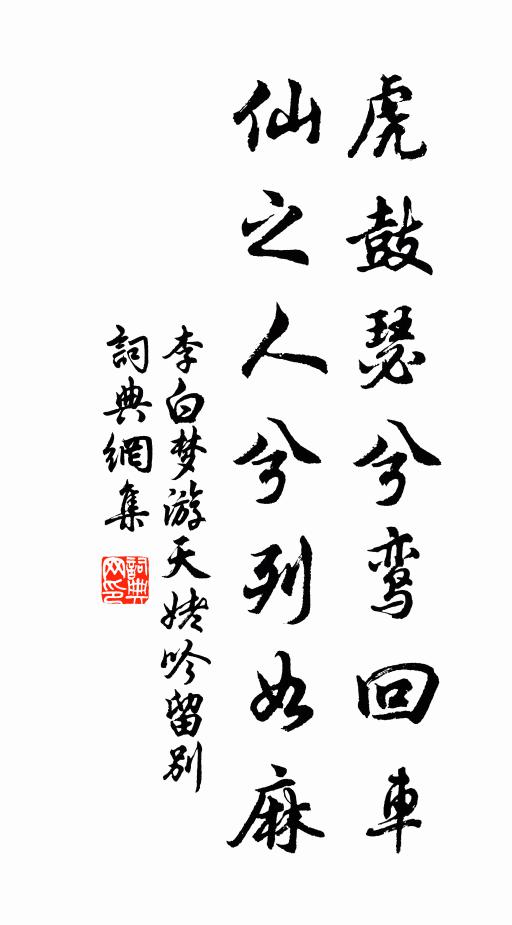 虎鼓瑟兮鸾回車
仙之人兮列如麻
李白梦游天姥吟留别
詞典網集
詞典网印